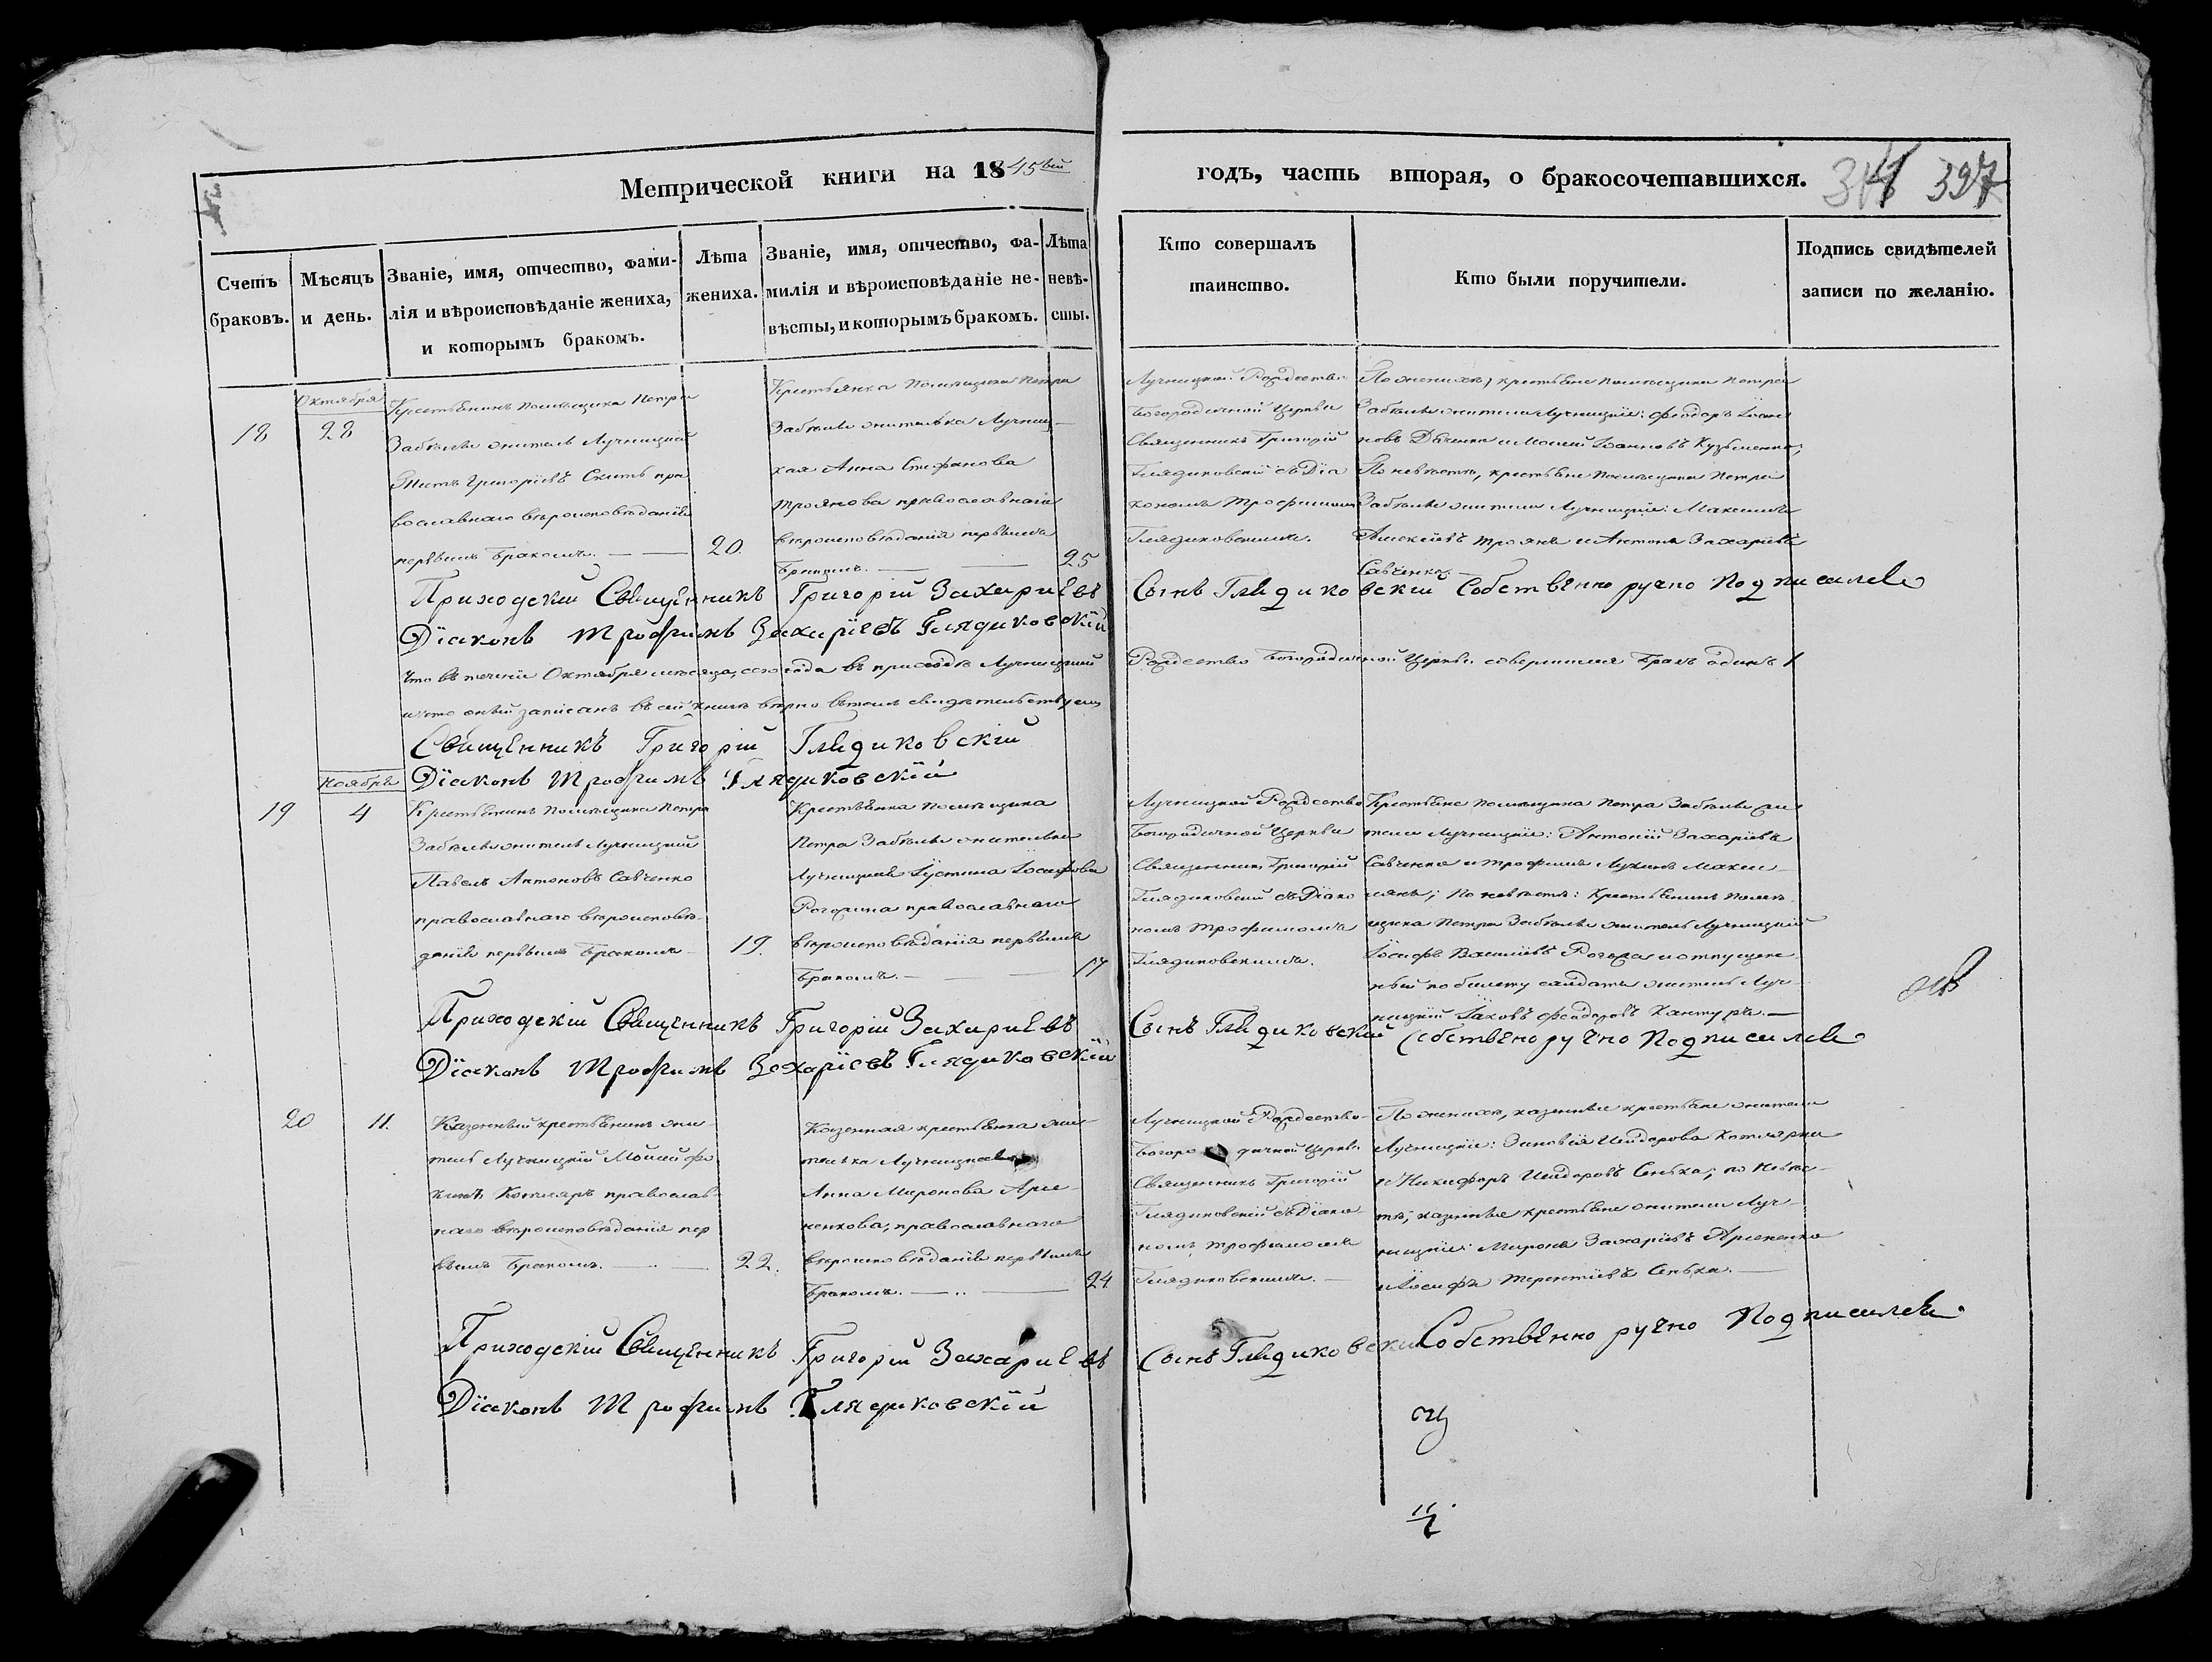 Метрической книги на 1845вый годъ, часть вторая, о бракосочетавшихся.
397
Счетъ браковъ.
Мѣсяцъ и день.
Званіе, имя, отчество, фами-
лія и вѣроисповѣданіе жениха,
и которымъ бракомъ.
Лѣта
жениха.
Званіе, имя, отчество, фа-
милія и вѣроисповѣданіе не-
вѣсты, и которымъ бракомъ.
Лѣта
невѣ-
сты.
Кто совершалъ
таинство.
Кто были поручители.
Подпись свидѣтелей
записи по желанію.
18
Октября
28
Крестьянинъ помѣщика Петра
Забѣлы житель Лучницкій
Григоріевъ пра
вославнаго вѣроисповѣданія
первымъ бракомъ.
20.
Крестьянка помѣщика Петра
Забѣлы жителька Лучниц-
кая Анна Стефанова
Троянова православнаго
вѣроисповѣданія первымъ
бракомъ.
25
Лучницкой Рождество
Богородичной Церкви
Священникъ Григорій
Глядиковскій съ Діа
кономъ Трофимомъ
Глядиковскимъ.
По женихѣ, крестьяне помѣщика Петра
Забѣлы жители Лучницкіе: Феодоръ Іоан
новъ и Моисей Іоанновъ Кузьменко;
По невѣстѣ, крестьяне помѣщика Петра
Забѣлы жители Лучницкіе: Максимъ
Алексіевъ Троянъ и Антонъ Захаріевъ
Савченко.
Приходскій Священникъ Григорій Захаріевъ Сынъ Глядиковскій Собственноручно Подписался
Діаконъ Трофимъ Захаріевъ Глядиковскій
Что въ теченіи Октября мѣсяца, сего года въ приходѣ Лучницкой Рождество Богородичной Церкви совершился бракъ одинъ 1
и что оный записанъ въ сей книгѣ вѣрно въ томъ свидѣтельствуемъ
Священникъ Григорій Глядиковскій
Діаконъ Трофимъ Глядиковскій
Ноября
19
4
Крестьянинъ помѣщика Петра
Забѣлы житель Лучницкій
Павелъ Антоновъ Савченко
православнаго вѣроисповѣ-
данія первымъ бракомъ
19.
Крестьянка помѣщика
Петра Забѣлы жителька
Лучницкая Іустина Іосифова
православнаго
вѣроисповѣданія первымъ
бракомъ.
17
Лучницкой Рождество
Богородичной Церкви
Священникъ Григорій
Глядиковскій съ Діако
номъ Трофимомъ
Глядиковскимъ.
Крестьяне помѣщика Петра Забѣлы жи
тели Лучницкіе: Антоній Захаріевъ
Савченко и Трофимъ Лукинъ
По невѣстѣ: Крестьянинъ помѣ
щика Петра Забѣлы житель Лучницкій
Іосифъ и отпущен
ный по билету солдатъ житель Луч-
ницкій Іаковъ Феодоровъ Кантуръ.
Приходскій Священникъ Григорій Захаріевъ Сынъ Глядиковскій Собственоручно Подписался
Діаконъ Трофимъ Захаріевъ Глядиковскій
20
11.
Казенный крестьянинъ жи-
тель Лучницкій Моисей Фо
кинъ Котляръ православ-
наго вѣроисповѣданія пер
вымъ бракомъ.
22.
Казенная крестьянка жи-
телька Лучницкая
Анна Миронова Арте-
менкова, православнаго
вѣроисповѣданія первымъ
бракомъ.
24
Лучницкой Рождество-
Богородичной Церкви
Священникъ Григорій
Глядиковскій съ Діако
номъ Трофимомъ
Глядиковскимъ.
По женихѣ, казенные крестьяне жители
Лучницкіе: Котлярка
и Никифоръ Исидоровъ Сенька; по невѣс-
тѣ, казенные крестьяне жители Луч-
ницкіе: Миронъ Захаріевъ
и Іосифъ Терентіевъ Сенька.
Приходскій Священникъ Григорій Захаріевъ Сынъ Глядиковскій Собственно ручно Подписался.
Діаконъ Трофимъ Глядиковскій